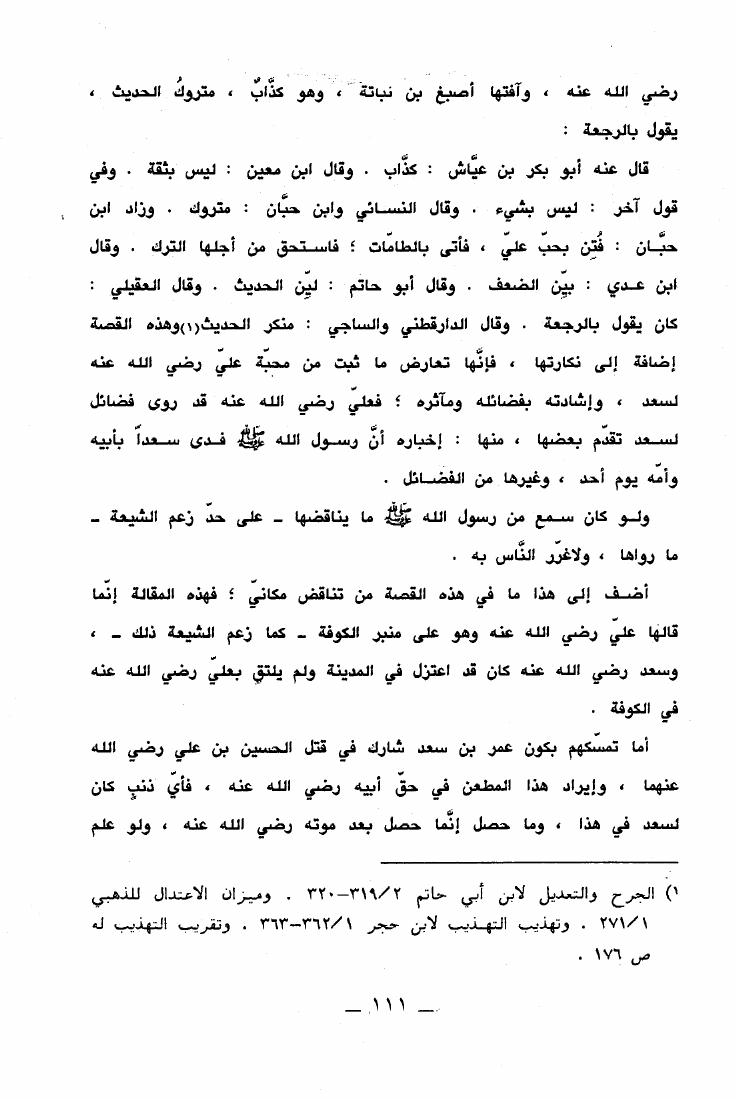 رضي الله عنه ، وآفتها أصبغ بن نباتة ، وهو كذَّابٌ ، متروكُ الحديث ،
يقول بالرجعة :
قال عنه أبو بكر بن عيَّاش : كذَّاب . وقال ابن معين : ليس بثقة . وفي
قول آخر : ليس بشيء . وقال النسائي وابن حبَّان : متروك . وزاد ابن
حبَّان : فُتِن بحبّ عليّ ، فأتى بالطامّات ؛ فاستحق من أجلها الترك . وقال
ابن عدي : بيّن الضعف . وقال أبو حاتم : ليّن الحديث . وقال العقيلي :
كان يقول بالرجعة . وقال الدارقطني والساجي : منكر الحديث(١)وهذه القصة
إضافة إلى نكارتها ، فإنَّها تعارض ما ثبت من محبّة عليّ رضي الله عنه
لسعد ، وإشادته بفضائله ومآثره ؛ فعليّ رضي الله عنه قد روى فضائل
لسعد تقدّم بعضها ، منها : إخباره أنَّ رسول الله ﷺ فدى سعداً بأبيه
وأمّه يوم أحد ، وغيرها من الفضائل .
ولو كان سمع من رسول الله ﷺ ما يناقضها ـ على حدّ زعم الشيعة ـ
ما رواها ، ولاغرّر النَّاس به .
أضف إلى هذا ما في هذه القصة من تناقض مكانيّ ؛ فهذه المقالة إنّما
قالها عليّ رضي الله عنه وهو على منبر الكوفة ـ كما زعم الشيعة ذلك ـ ،
وسعد رضي الله عنه كان قد اعتزل في المدينة ولم يلتق بعليّ رضي الله عنه
في الكوفة .
أما تمسّكهم بكون عمر بن سعد شارك في قتل الحسين بن علي رضي الله
عنهما ، وإيراد هذا المطعن في حقّ أبيه رضي الله عنه ، فأيّ ذنبٍ كان
لسعد في هذا ، وما حصل إنَّما حصل بعد موته رضي الله عنه ، ولو علم
١) الجرح والتعديل لابن أبي حاتم ٣١٩/٢–٣٢٠ . وميزان الاعتدال للذهبي
٢٧١/١ . وتهذيب التهذيب لابن حجر ٣٦٢/١–٣٦٣ . وتقريب التهذيب له
ص ١٧٦ .
ـ ١١١ ـ